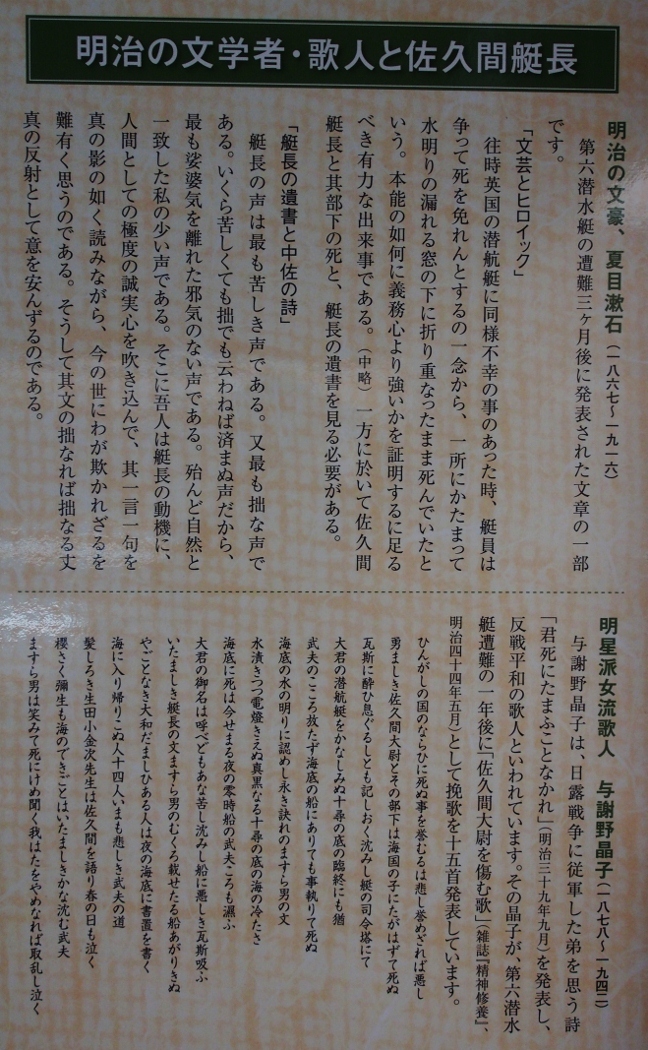 明治の文学者・歌人と佐久間艇長
明治の文豪、夏目漱石（一八六七～一九一六）
第六潜水艇の遭難三ヶ月後に発表された文章の一部
です。
「文芸とヒロイック」
往時英国の潜航艇に同様不幸の事のあった時、艇員は
争って死を免れんとするの一念から、一所にかたまって
水明りの漏れる窓の下に折り重なったまま死んでいたと
いう。本能の如何に義務心より強いかを証明するに足る
べき有力な出来事である。（中略）一方に於いて佐久間
艇長と其部下の死と、艇長の遺書を見る必要がある。
「艇長の遺書と中佐の詩」
艇長の声は最も苦しき声である。又最も拙な声で
ある。いくら苦しくても拙でも云わねば済まぬ声だから、
最も娑婆気を離れた邪気のない声である。殆んど自然と
一致した私の少い声である。そこに吾人は艇長の動機に、
人間としての極度の誠実心を吹き込んで、其一言一句を
真の影の如く読みながら、今の世にわが欺かれざるを
難有く思うのである。そうして其文の拙なれば拙なる丈
真の反射として意を安んずるのである。
明星派女流歌人　与謝野晶子（一八七八～一九四二）
与謝野晶子は、日露戦争に従軍した弟を思う詩
「君死にたまふことなかれ」（明治三十九年九月）を発表し、
反戦平和の歌人といわれています。その晶子が、第六潜水
艇遭難の一年後に「佐久間大尉を傷む歌」（雑誌『精神修養』、
明治四十四年五月）として挽歌を十五首発表しています。
ひんがしの国のならひに死ぬ事を誉むるは悲し誉めざれば悪し
勇ましき佐久間大尉とその部下は海国の子にたがはずて死ぬ
瓦斯に酔ひ息ぐるしとも記しおく沈みし艇の司令塔にて
大君の潜航艇をかなしみぬ十尋の底の臨終にも猶
武夫のこころ放たず海底の船にありても事執りて死ぬ
海底の水の明りに認めし永き訣れのますら男の文
水漬きつつ電燈きえぬ真黒なる十尋の底の海の冷たさ
海底に死は今せまる夜の零時船の武夫ころも濡ふ
大君の御名は呼べどもあな苦し沈みし船に悪しき瓦斯吸ふ
いたましき艇長の文ますら男のむくろ載せたる船あがりきぬ
やごとなき大和だましひある人は夜の海底に書置を書く
海に入り帰りこぬ人十四人いまも悲しき武夫の道
髪しろき生田小金次先生は佐久間を語り春の日も泣く
櫻さく彌生も海のできごとはいたましきかな沈む武夫
ますら男は笑みて死にけめ聞く我はたをやめなれば取乱し泣く